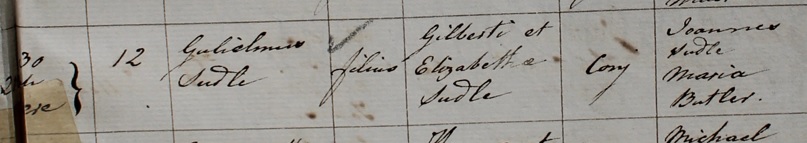 30
12
Gulielmus
Sudle
filius
Gilberti et
Elizabethæ
Sudle
Conj
Joannes
Sudle
Maria
Butler.
Michael